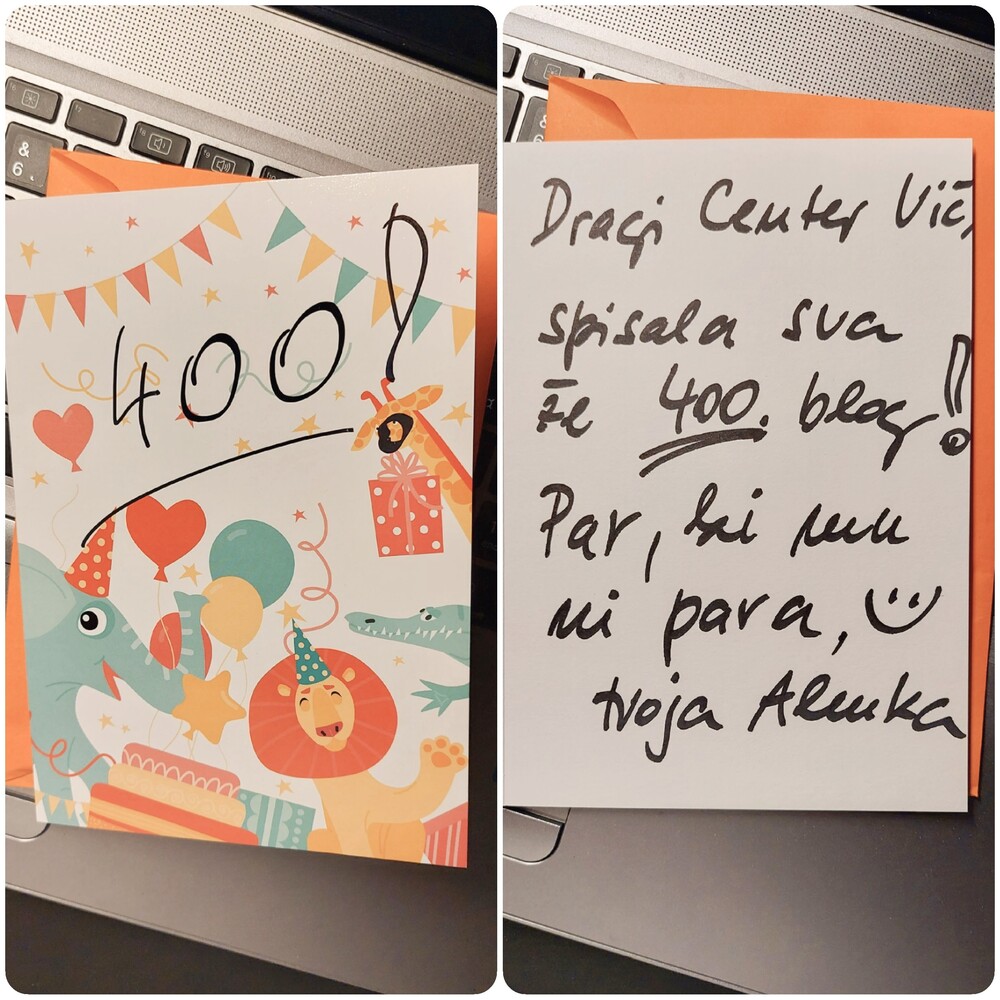 &
6
400!
Dragi Center Vič,
spisala sva
že 400. blog!
Par, ki mu
ni para,
tvoja Alenka